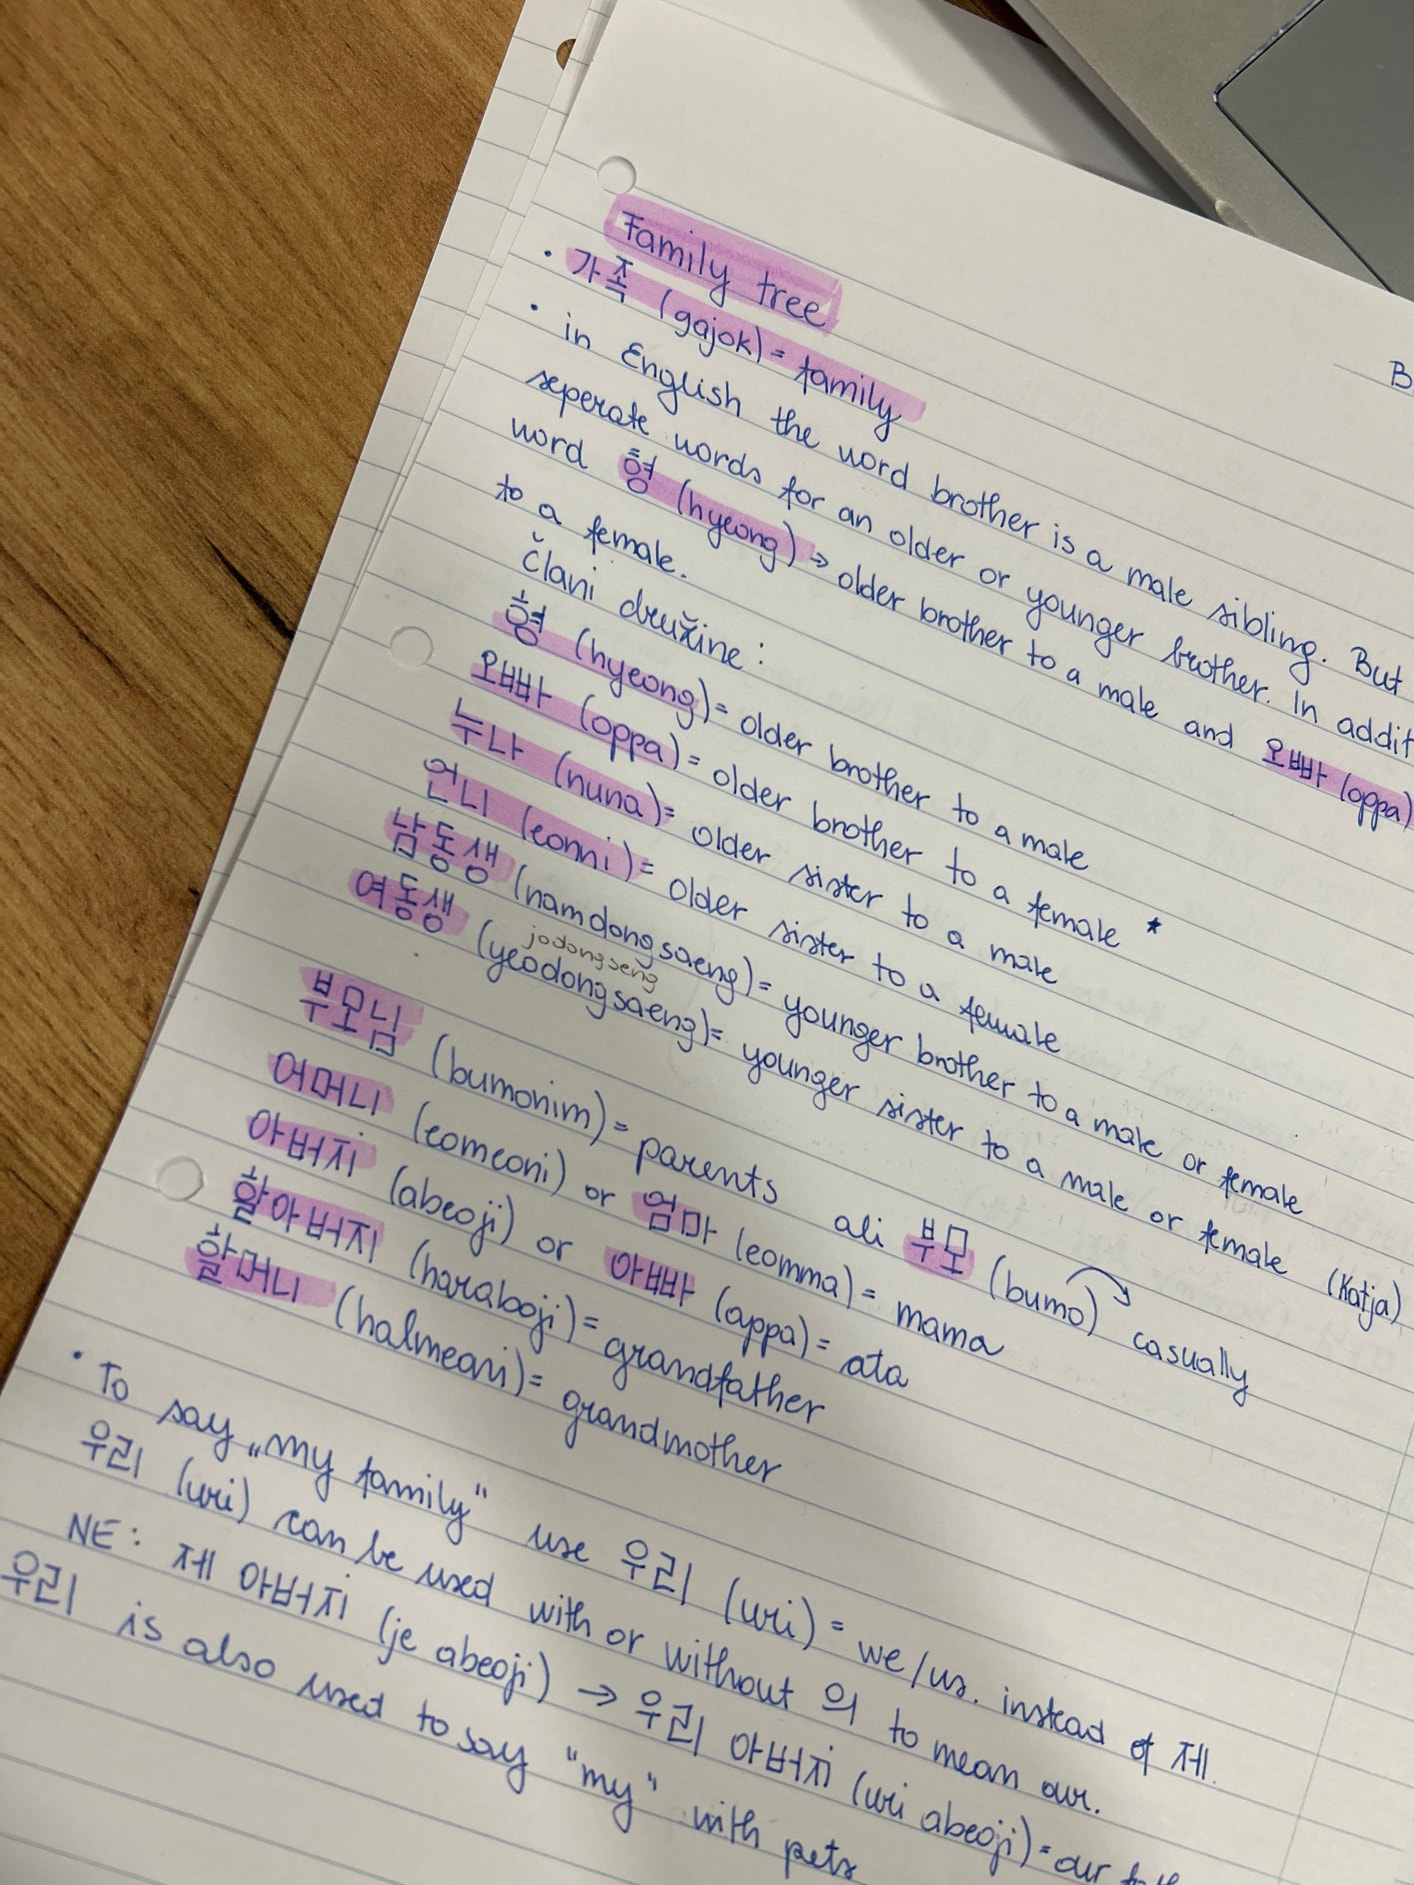 Family tree
• 가족 (gajok) = family
B
• in English the word brother is a male sibling. But
seperate words for an older or younger brother. In addit
word 형 (hyeong) → older brother to a male and 오빠 (oppa)
to a female.
Člani družine:
형 (hyeong) = older brother to a male
오빠 (oppa) = older brother to a female *
누나 (nuna) = older sister to a male
언니 (eonni) = older sister to a female
남동생 (namdongsaeng) = younger brother to a male or female
jodongseng
여동생 (yeodongsaeng) = younger sister to a male or female (Katja)
부모님 (bumonim) = parents ali 부모 (bumo) casually
어머니 (eomeoni) or 엄마 (eomma) = mama
아버지 (abeoji) or 아빠 (appa) = ata
할아버지 (haraboji) = grandfather
할머니 (halmeoni) = grandmother
• To say „my family" use 우리 (uri) = we/us. instead of 제.
우리 (uri) can be used with or without 의 to mean our.
NE: 제 아버지 (je abeoji) → 우리 아버지 (uri abeoji) = our
우리 is also used to say "my" with pets